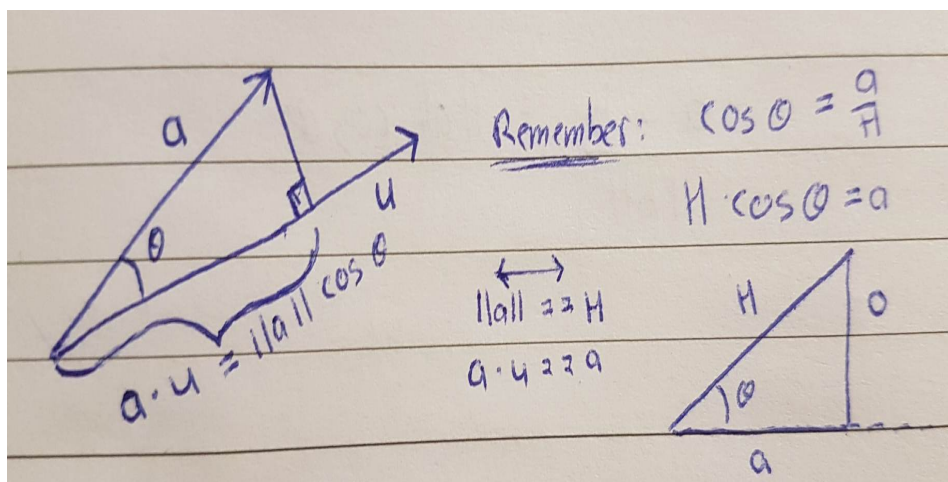 a
θ
u
a·u = ||a|| cos θ
Remember: cos θ = a/H
H·cos θ = a
||a|| == H
a·u == a
H
O
θ
a